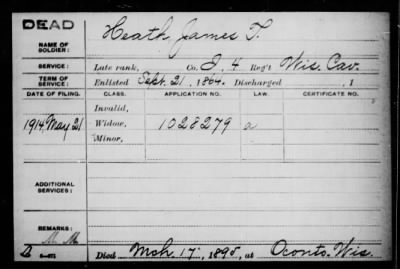 DEAD
NAME OF SOLDIER: Heath, James T.
SERVICE: Late rank, Co. I, 4 Reg't Wis. Cav.
TERM OF SERVICE: Enlisted Sept. 21, 1864. Discharged , 1
DATE OF FILING. CLASS. APPLICATION NO. LAW. CERTIFICATE NO.
Invalid,
1914, May 21 Widow, 1028279 a
Minor,
ADDITIONAL SERVICES:
REMARKS:
Died Mch. 17, 1895, at Oconto, Wis.